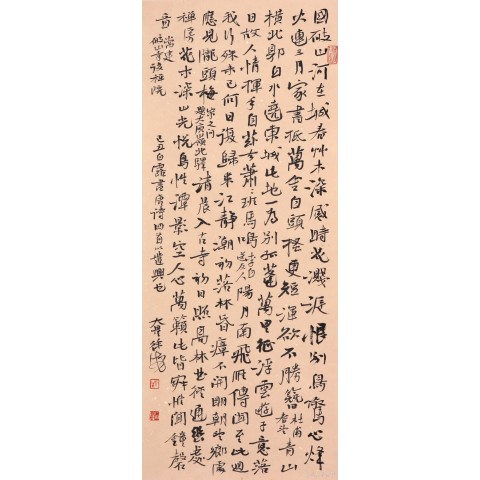 國破山河在城春艸木深感時花濺淚恨別鳥驚心烽
火連三月家書抵萬金白頭搔更短渾欲不勝簪杜甫春望青山
橫北郭白水遶東城此地一為別孤蓬萬里征浮雲遊子意落
日故人情揮手自茲去蕭班馬鳴李白送友人陽月南飛雁傳聞至此迴
我行殊未已何日復歸來江靜潮初落林昏瘴不開明朝望鄉處
應見隴頭梅宋之問題大庾嶺北驛清晨入古寺初日照高林曲徑通幽處
禪房花木深山光悅鳥性潭影空人心萬籟此皆寂惟聞鐘磬
音常建破山寺後禪院
己丑白露書唐詩四首以遣興也